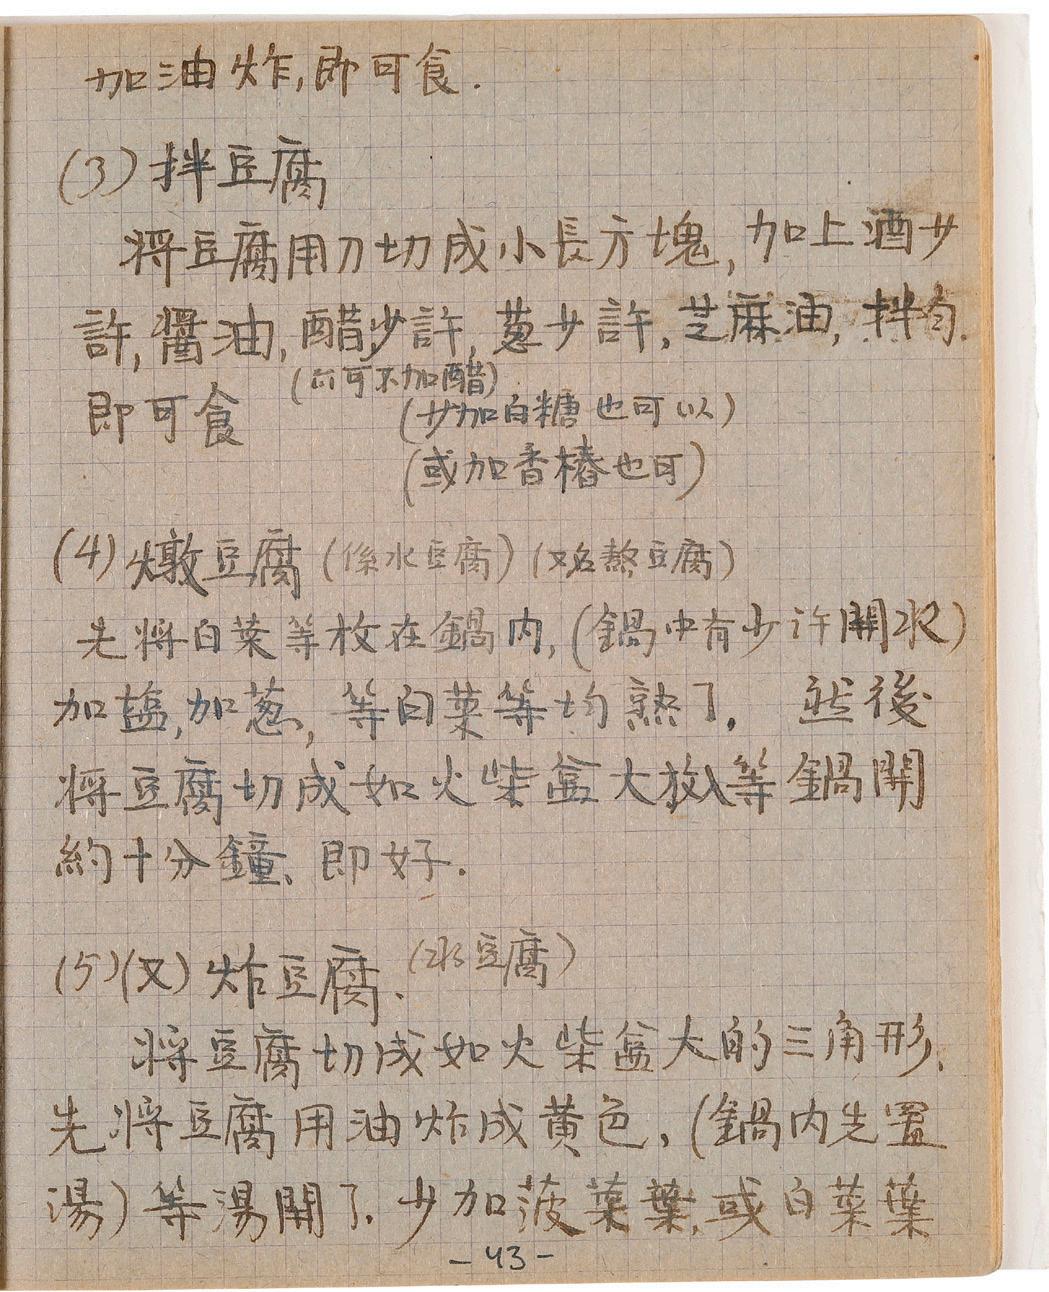 加油炸,即可食.
(3) 拌豆腐
將豆腐用刀切成小長方塊,加上酒少
許,醬油,醋少許,葱少許,芝麻油,拌匀.
即可食 (亦可不加醋)
(少加白糖也可以)
(或加香椿也可)
(4) 燉豆腐 (係水豆腐) (又名熬豆腐)
先將白菜等放在鍋內,(鍋中有少許開水)
加塩,加葱,等白菜等均熟了. 然後
將豆腐切成如火柴盒大放入等鍋開
約十分鐘、即好.
(5)(又) 炸豆腐. (水豆腐)
將豆腐切成如火柴盒大的三角形、
先將豆腐用油炸成黃色,(鍋內先置
湯)等湯開了.少加菠菜葉,或白菜葉
-43-